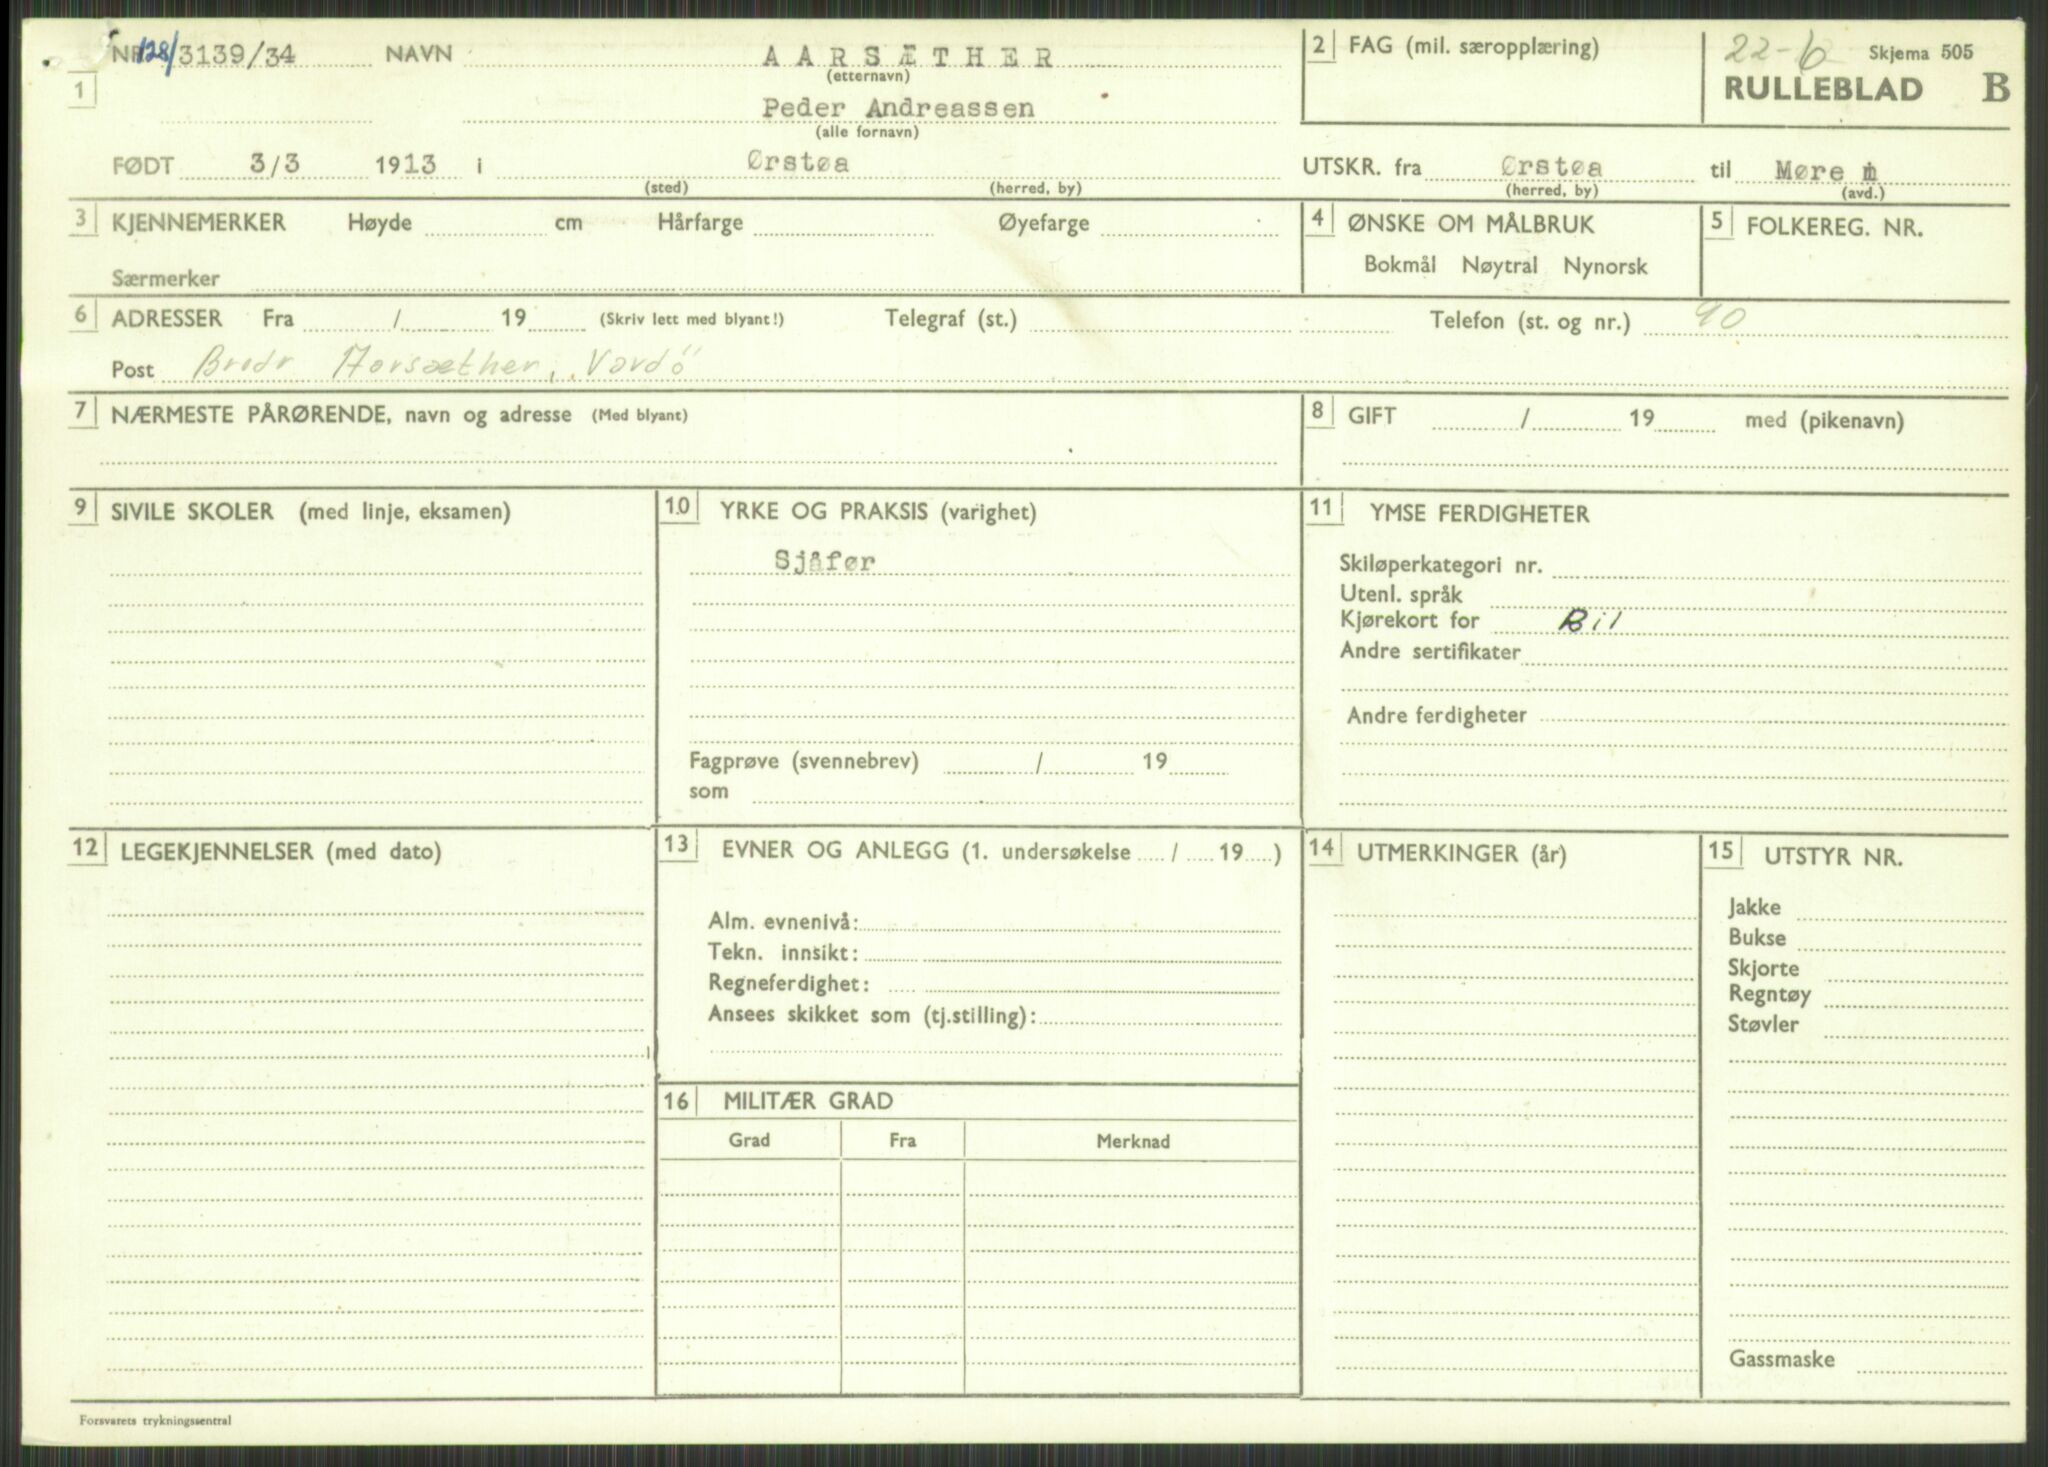 NR. 128/3139/34 NAVN AARSÆTHER
(etternavn)
1
Peder Andreassen
(alle fornavn)
FØDT 3/3 1913 i Ørstøa
(sted) (herred, by)
2 FAG (mil. særopplæring)
22-6 Skjema 505
RULLEBLAD B
UTSKR. fra Ørstøa til Møre i
(herred, by) (avd.)
3 KJENNEMERKER Høyde cm Hårfarge Øyefarge
Særmerker
4 ØNSKE OM MÅLBRUK
Bokmål Nøytral Nynorsk
5 FOLKEREG. NR.
6 ADRESSER Fra / 19 (Skriv lett med blyant!) Telegraf (st.) Telefon (st. og nr.) 90
Post Brødr Aarsæther, Vardö
7 NÆRMESTE PÅRØRENDE, navn og adresse (Med blyant)
8 GIFT / 19 med (pikenavn)
9 SIVILE SKOLER (med linje, eksamen)
10 YRKE OG PRAKSIS (varighet)
Sjåfør
Fagprøve (svennebrev) / 19
som
11 YMSE FERDIGHETER
Skiløperkategori nr.
Utenl. språk
Kjørekort for Bil
Andre sertifikater
Andre ferdigheter
12 LEGEKJENNELSER (med dato)
13 EVNER OG ANLEGG (1. undersøkelse / 19 )
Alm. evnenivå:
Tekn. innsikt:
Regneferdighet:
Ansees skikket som (tj.stilling):
14 UTMERKINGER (år)
15 UTSTYR NR.
Jakke
Bukse
Skjorte
Regntøy
Støvler
Gassmaske
16 MILITÆR GRAD
Grad Fra Merknad
Forsvarets trykningssentral